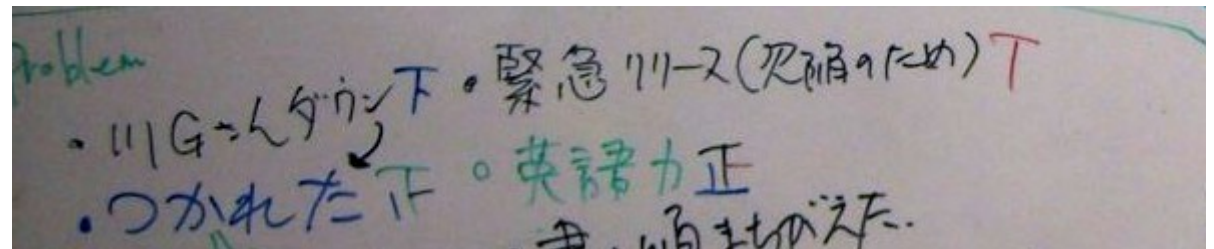 Problem
・川Gさんダウン下 ・緊急リリース(欠陥のため)T
・つかれた正 ・英語力正
まちがえた.